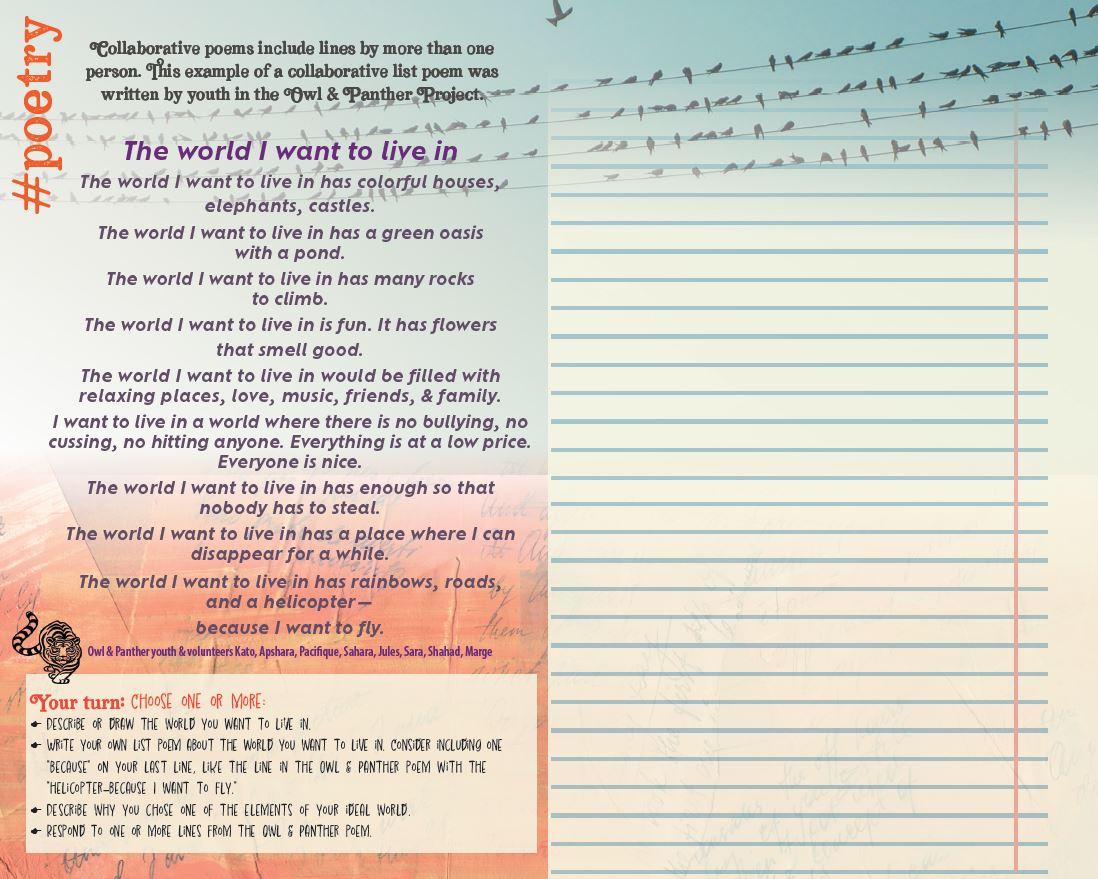 #poetry
Collaborative poems include lines by more than one
person. This example of a collaborative list poem was
written by youth in the Owl & Panther Project.
The world I want to live in
The world I want to live in has colorful houses,
elephants, castles.
The world I want to live in has a green oasis
with a pond.
The world I want to live in has many rocks
to climb.
The world I want to live in is fun. It has flowers
that smell good.
The world I want to live in would be filled with
relaxing places, love, music, friends, & family.
I want to live in a world where there is no bullying, no
cussing, no hitting anyone. Everything is at a low price.
Everyone is nice.
The world I want to live in has enough so that
nobody has to steal.
The world I want to live in has a place where I can
disappear for a while.
The world I want to live in has rainbows, roads,
and a helicopter—
because I want to fly.
Owl & Panther youth & volunteers Kato, Apshara, Pacifique, Sahara, Jules, Sara, Shahad, Marge
Your turn: CHOOSE ONE OR MORE:
DESCRIBE OR DRAW THE WORLD YOU WANT TO LIVE IN.
WRITE YOUR OWN LIST POEM ABOUT THE WORLD YOU WANT TO LIVE IN. CONSIDER INCLUDING ONE
"BECAUSE" ON YOUR LAST LINE, LIKE THE LINE IN THE OWL & PANTHER POEM WITH THE
"HELICOPTER—BECAUSE I WANT TO FLY."
DESCRIBE WHY YOU CHOSE ONE OF THE ELEMENTS OF YOUR IDEAL WORLD.
RESPOND TO ONE OR MORE LINES FROM THE OWL & PANTHER POEM.